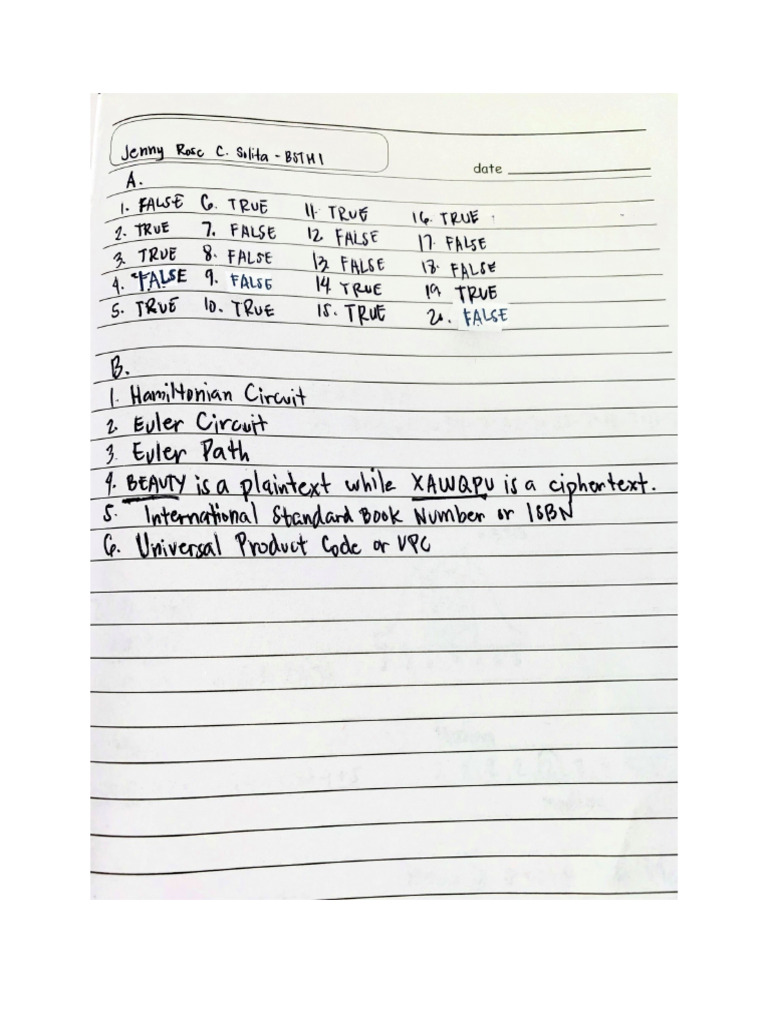 Jenny Rose C. Solita - BSTM 1
date
A.
1. FALSE 6. TRUE 11. TRUE 16. TRUE
2. TRUE 7. FALSE 12. FALSE 17. FALSE
3. TRUE 8. FALSE 13. FALSE 18. FALSE
4. FALSE 9. FALSE 14. TRUE 19. TRUE
5. TRUE 10. TRUE 15. TRUE 20. FALSE
B.
1. Hamiltonian Circuit
2. Euler Circuit
3. Euler Path
4. BEAUTY is a plaintext while XAWQPU is a ciphertext.
5. International Standard Book Number or ISBN
6. Universal Product Code or UPC